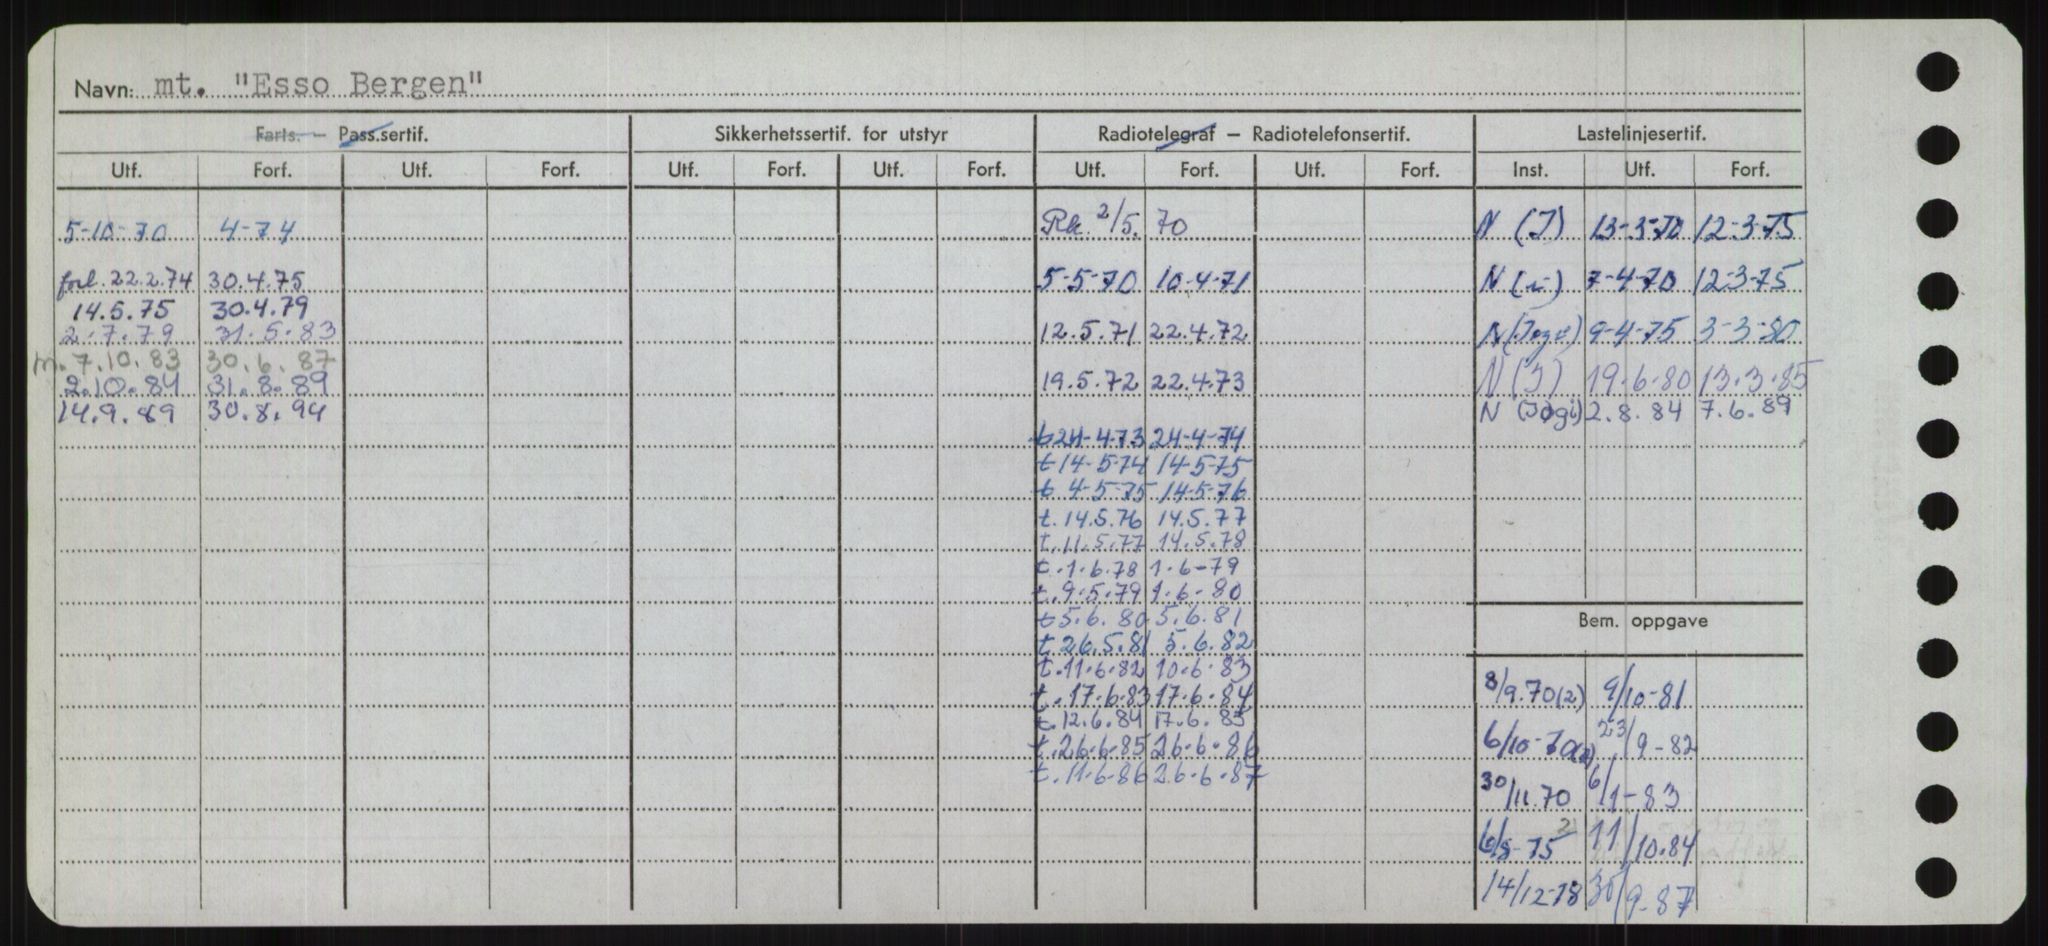 Navn: mt. "Esso Bergen"
Farts. — Pass.sertif. Sikkerhetssertif. for utstyr Radiotelegraf — Radiotelefonsertif. Lastelinjesertif.
Utf. Forf. Utf. Forf. Utf. Forf. Utf. Forf. Utf. Forf. Utf. Forf. Inst. Utf. Forf.
5-10-70 4-74 2/5. 70 N (I) 13-3-70 12-3-75
forl. 22.2.74 30.4.75 5-5-70 10-4-71 N 7-4-70 12-3-75
14.5.75 30.4.79
2.7.79 31.5.83 12.5.71 22.4.72 N 9-4-75 3-3-80
m.7.10.83 30.6.87
2.10.84 31.8.89 19.5.72 22.4.73 N (I) 19.6.80 13.3.85
14.9.89 30.8.94 N (Iogi) 2.8.84 7.6.89
t 24-4-73 24-4-74
t 14-5-74 14-5-75
t 4-5-75 14-5-76
t. 14.5.76 14.5.77
t. 11.5.77 14.5.78
t. 1.6.78 1.6-79
t. 9.5.79 1.6.80
t 5.6.80 5.6.81
t. 26.5.81 5.6.82
t. 11.6.82 10.6.83
t. 17.6.83 17.6.84
t. 12.6.84 17.6.85
t. 26.6.85 26.6.86
t. 11.6.86 26.6.87
Bem. oppgave
8/9.70(2) 9/10-81
6/10-70 23/9-82
30/11.70 6/1-83
6/8-75 11/10.84
14/12-78 30/9-87